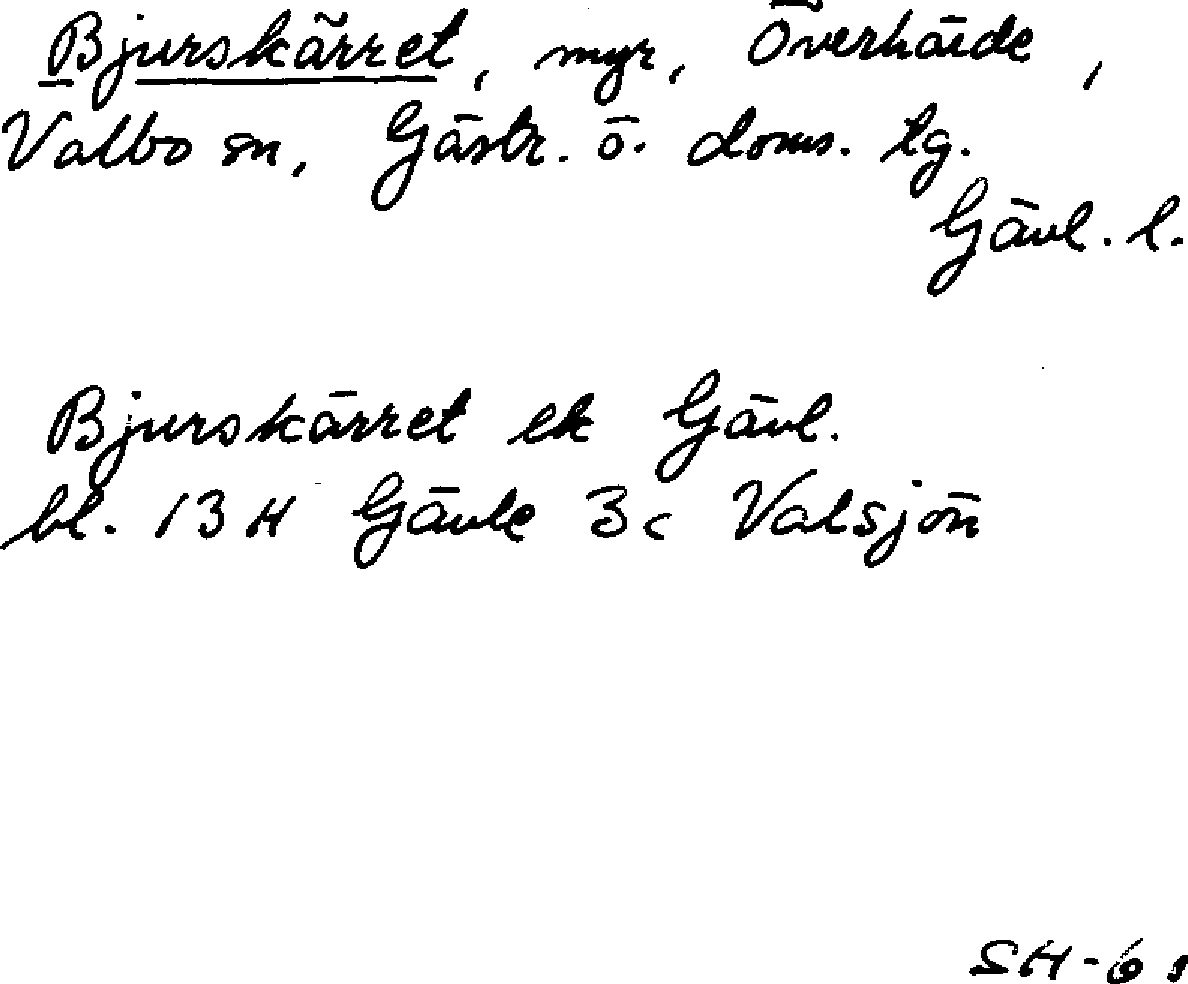 Bjurskärret, myr, Överhärde,
Valbo sn, Gästr. ö. doms. tg.
Gävl. l.
Bjurskärret ek Gävl.
bl. 13 H Gävle 3c Valsjön
SH-61